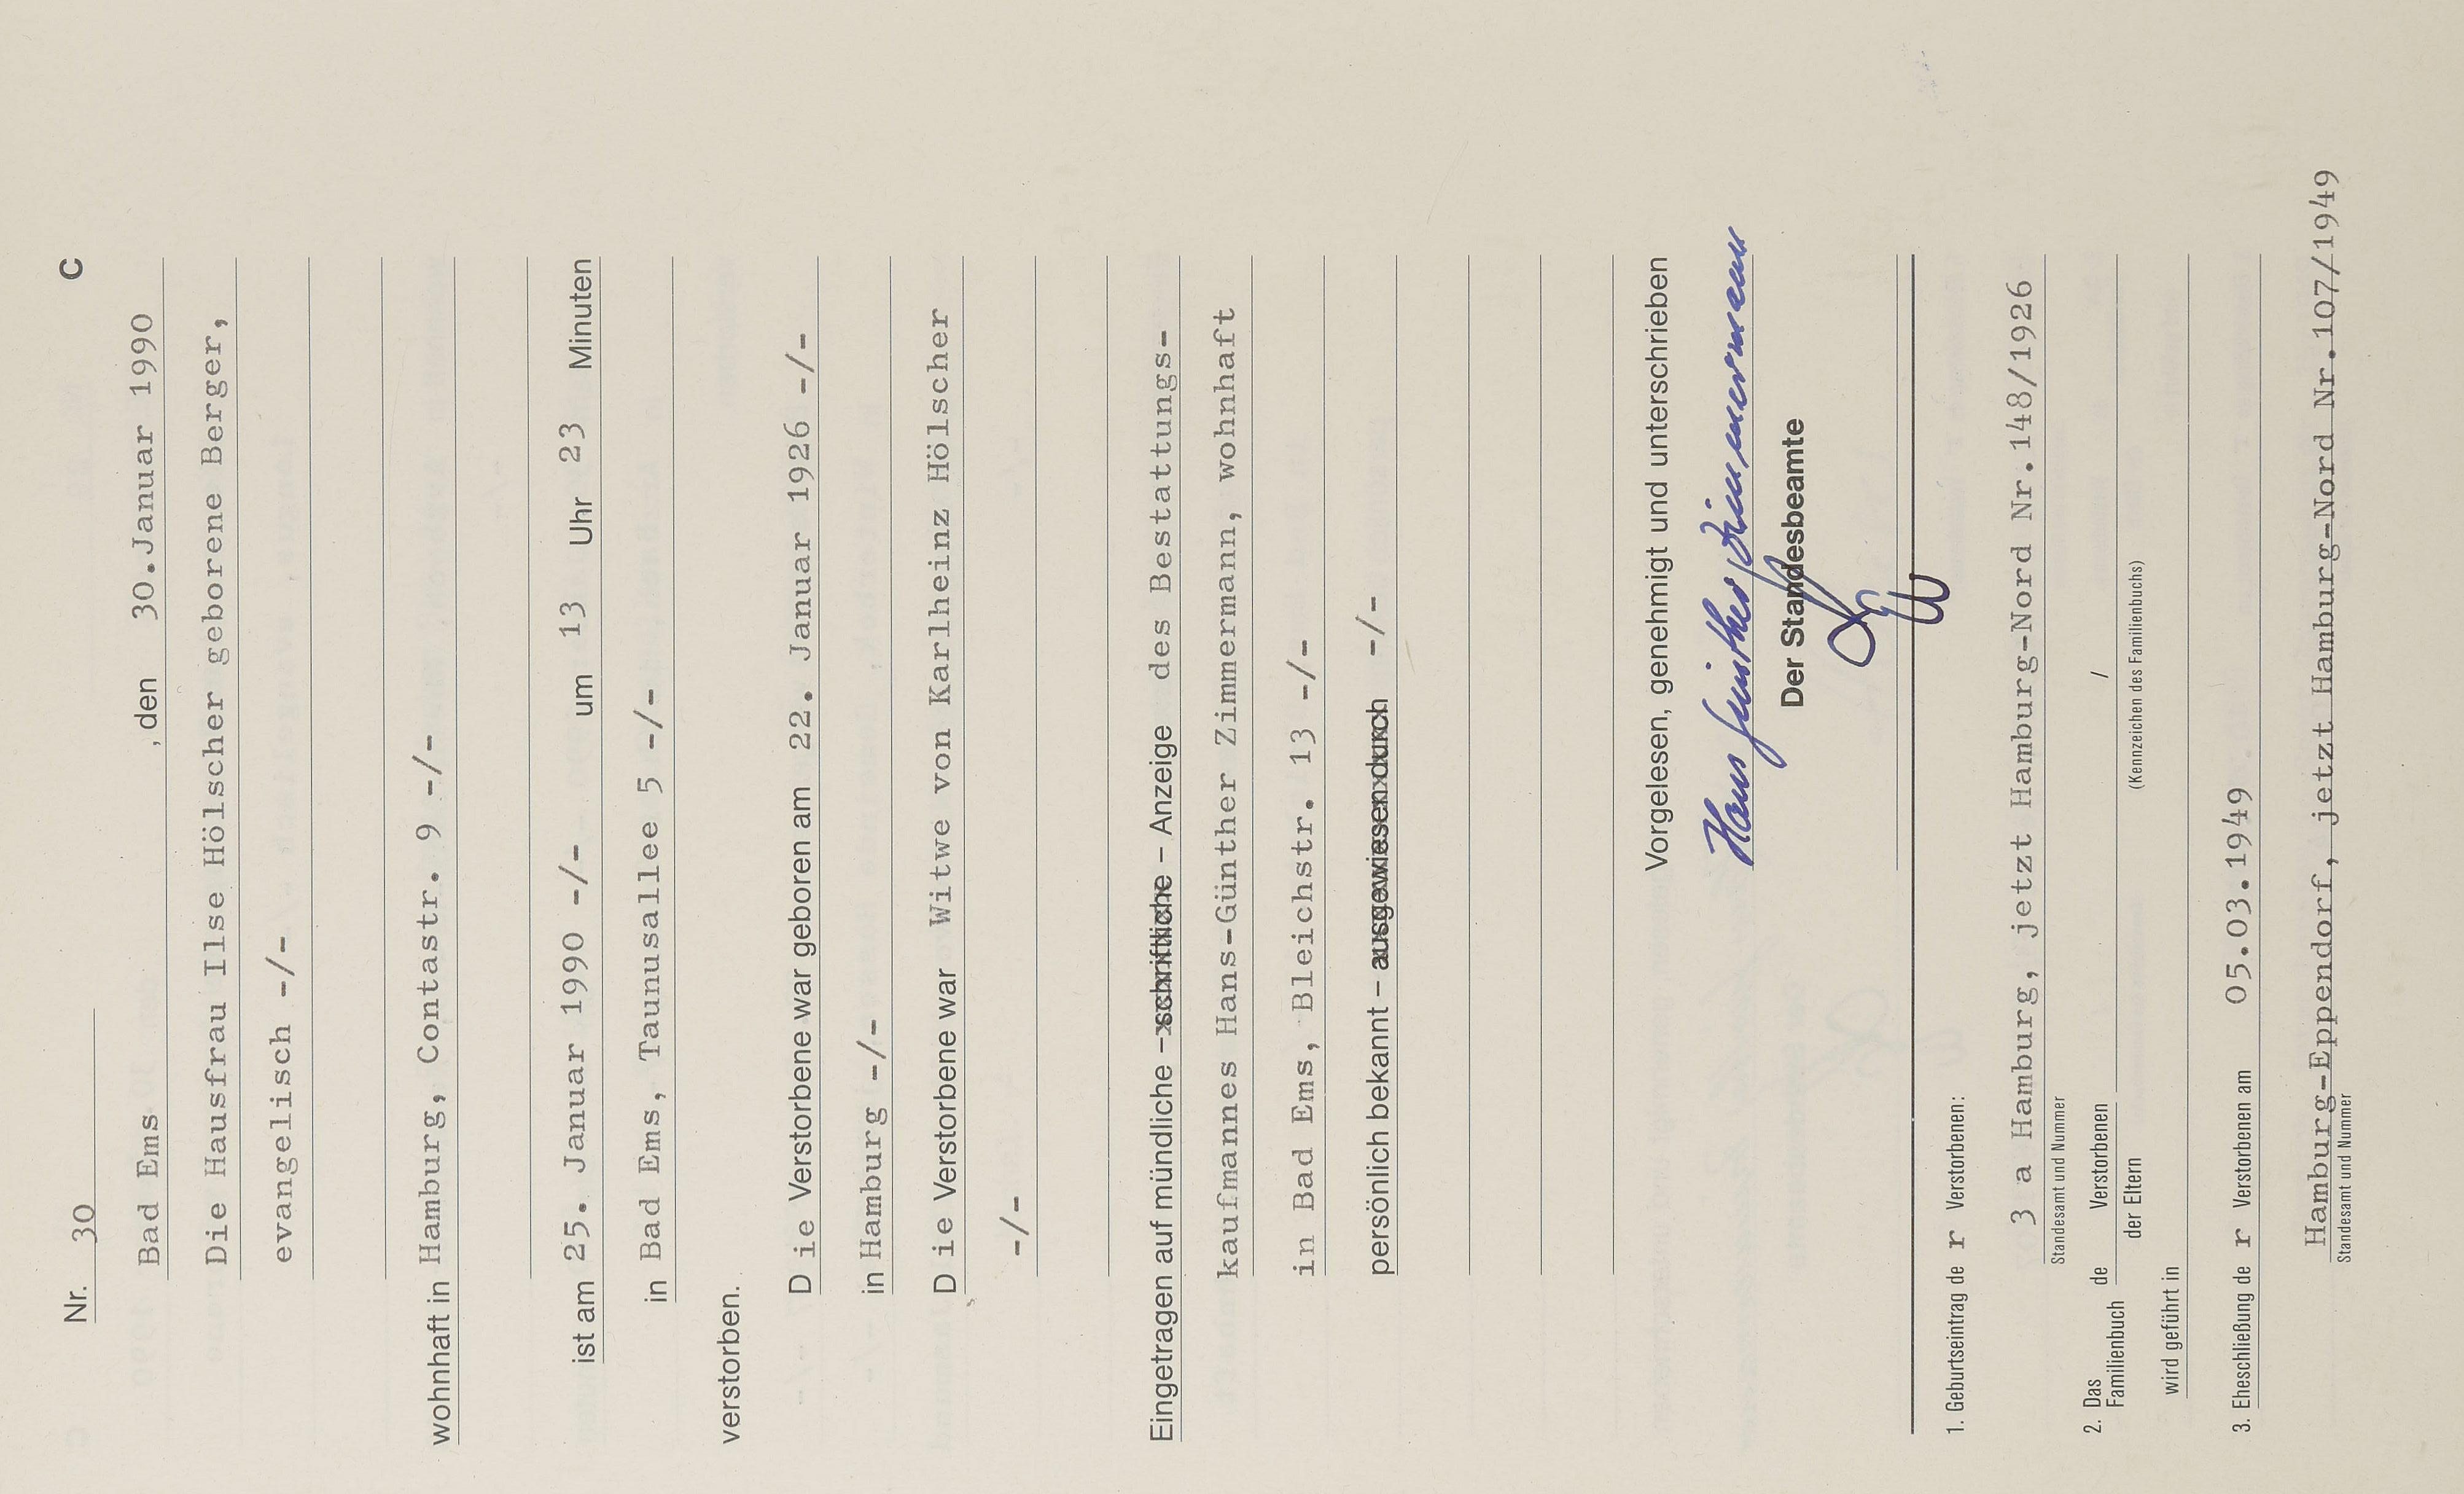 Nr. 30 C
Bad Ems , den 30.Januar 1990
Die Hausfrau Ilse Hölscher geborene Berger,
evangelisch -/-
wohnhaft in Hamburg, Contastr. 9 -/-
ist am 25. Januar 1990 -/- um 13 Uhr 23 Minuten
in Bad Ems, Taunusallee 5 -/-
verstorben.
D ie Verstorbene war geboren am 22. Januar 1926 -/-
in Hamburg -/-
D ie Verstorbene war Witwe von Karlheinz Hölscher
-/-
Eingetragen auf mündliche – schriftliche – Anzeige des Bestattungs-
kaufmannes Hans-Günther Zimmermann, wohnhaft
in Bad Ems, Bleichstr. 13 -/-
persönlich bekannt – ausgewiesen durch -/-
Vorgelesen, genehmigt und unterschrieben
Hans Günther Zimmermann
Der Standesbeamte
1. Geburtseintrag de r Verstorbenen:
3 a Hamburg, jetzt Hamburg-Nord Nr.148/1926
Standesamt und Nummer
2. Das Familienbuch de Verstorbenen /
der Eltern (Kennzeichen des Familienbuchs)
wird geführt in
3. Eheschließung de r Verstorbenen am 05.03.1949
Hamburg-Eppendorf, jetzt Hamburg-Nord Nr.107/1949
Standesamt und Nummer